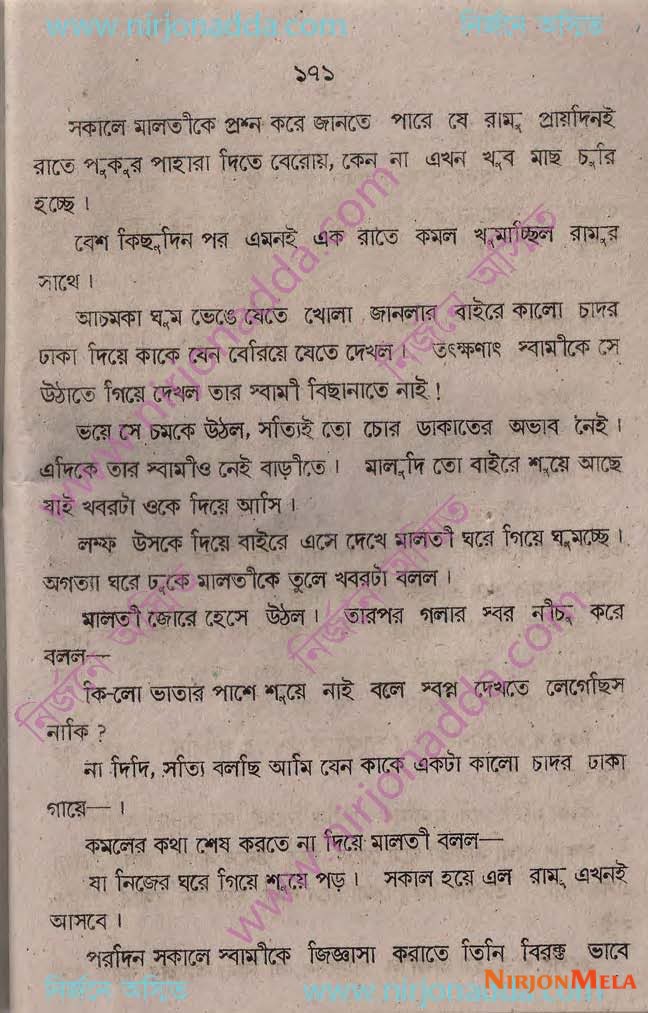 www.nirjonadda.com নির্জনে অসিত
১৭১
সকালে মালতীকে প্রশ্ন করে জানতে পারে যে রামু প্রায়দিনই
রাতে পুকুর পাহারা দিতে বেরোয়, কেন না এখন খুব মাছ চুরি
হচ্ছে।
বেশ কিছুদিন পর এমনই এক রাতে কমল ঘুমাচ্ছিল রামুর
সাথে।
আচমকা ঘুম ভেঙে যেতে খোলা জানলার বাইরে কালো চাদর
ঢাকা দিয়ে কাকে যেন বেরিয়ে যেতে দেখল। তৎক্ষণাৎ স্বামীকে সে
উঠাতে গিয়ে দেখল তার স্বামী বিছানাতে নাই!
ভয়ে সে চমকে উঠল, সত্যিই তো চোর ডাকাতের অভাব নেই।
এদিকে তার স্বামীও নেই বাড়ীতে। মালুদি তো বাইরে শুয়ে আছে
যাই খবরটা ওকে দিয়ে আসি।
লম্ফ উসকে দিয়ে বাইরে এসে দেখে মালতী ঘরে গিয়ে ঘুমচ্ছে।
অগত্যা ঘরে ঢুকে মালতীকে তুলে খবরটা বলল।
মালতী জোরে হেসে উঠল। তারপর গলার স্বর নীচু করে
বলল—
কি-লো ভাতার পাশে শুয়ে নাই বলে স্বপ্ন দেখতে লেগেছিস
নাকি ?
না দিদি, সত্যি বলছি আমি যেন কাকে একটা কালো চাদর ঢাকা
গায়ে—।
কমলের কথা শেষ করতে না দিয়ে মালতী বলল—
যা নিজের ঘরে গিয়ে শুয়ে পড়। সকাল হয়ে এল রামু এখনই
আসবে।
পরদিন সকালে স্বামীকে জিজ্ঞাসা করাতে তিনি বিরক্ত ভাবে
www.nirjonadda.com নির্জনে অসিত
www.nirjonadda.com নির্জনে অসিত
নির্জনে অসিত www.nirjonadda.com
NIRJONMELA